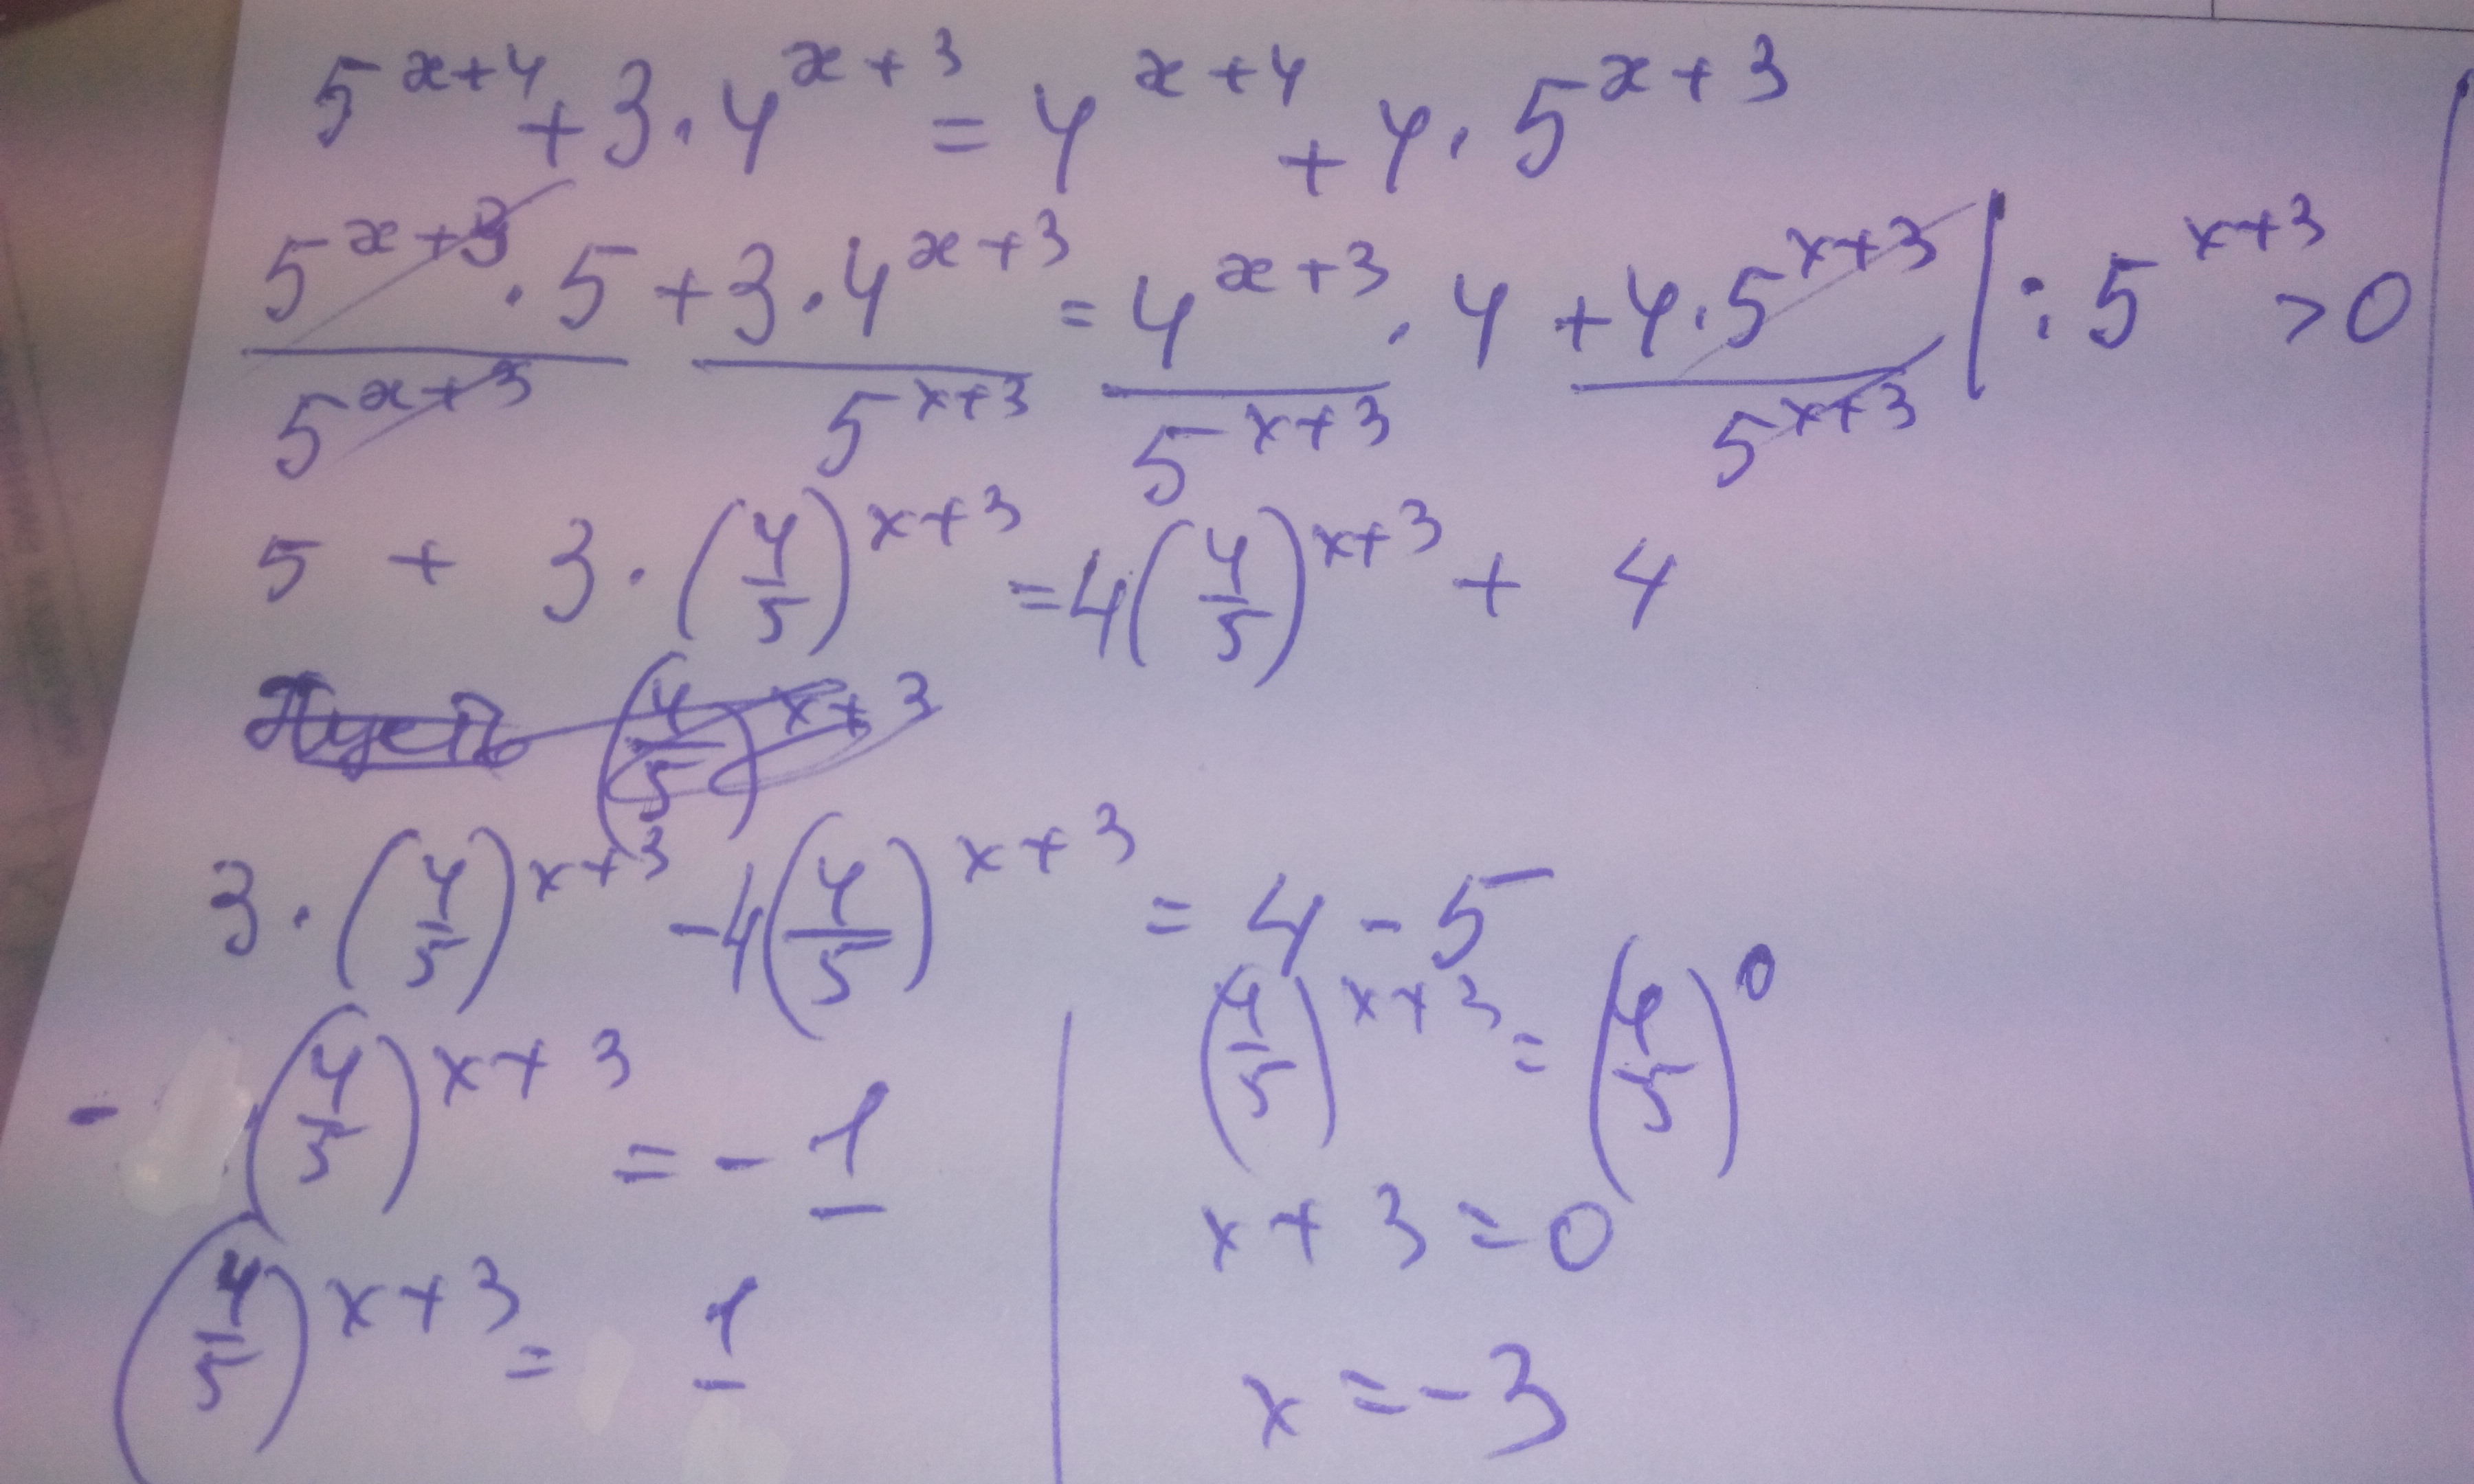 5^{x+4} + 3 · 4^{x+3} = 4^{x+4} + 4 · 5^{x+3}
\frac{5^{x+3} · 5}{5^{x+3}} + \frac{3 · 4^{x+3}}{5^{x+3}} = \frac{4^{x+3}}{5^{x+3}} · 4 + \frac{4 · 5^{x+3}}{5^{x+3}} | : 5^{x+3} > 0
5 + 3 · (\frac{4}{5})^{x+3} = 4(\frac{4}{5})^{x+3} + 4
Пусть (\frac{4}{5})^{x+3}
3 · (\frac{4}{5})^{x+3} - 4(\frac{4}{5})^{x+3} = 4 - 5
- (\frac{4}{5})^{x+3} = - 1
(\frac{4}{5})^{x+3} = 1
(\frac{4}{5})^{x+3} = (\frac{4}{5})^{0}
x + 3 = 0
x = - 3